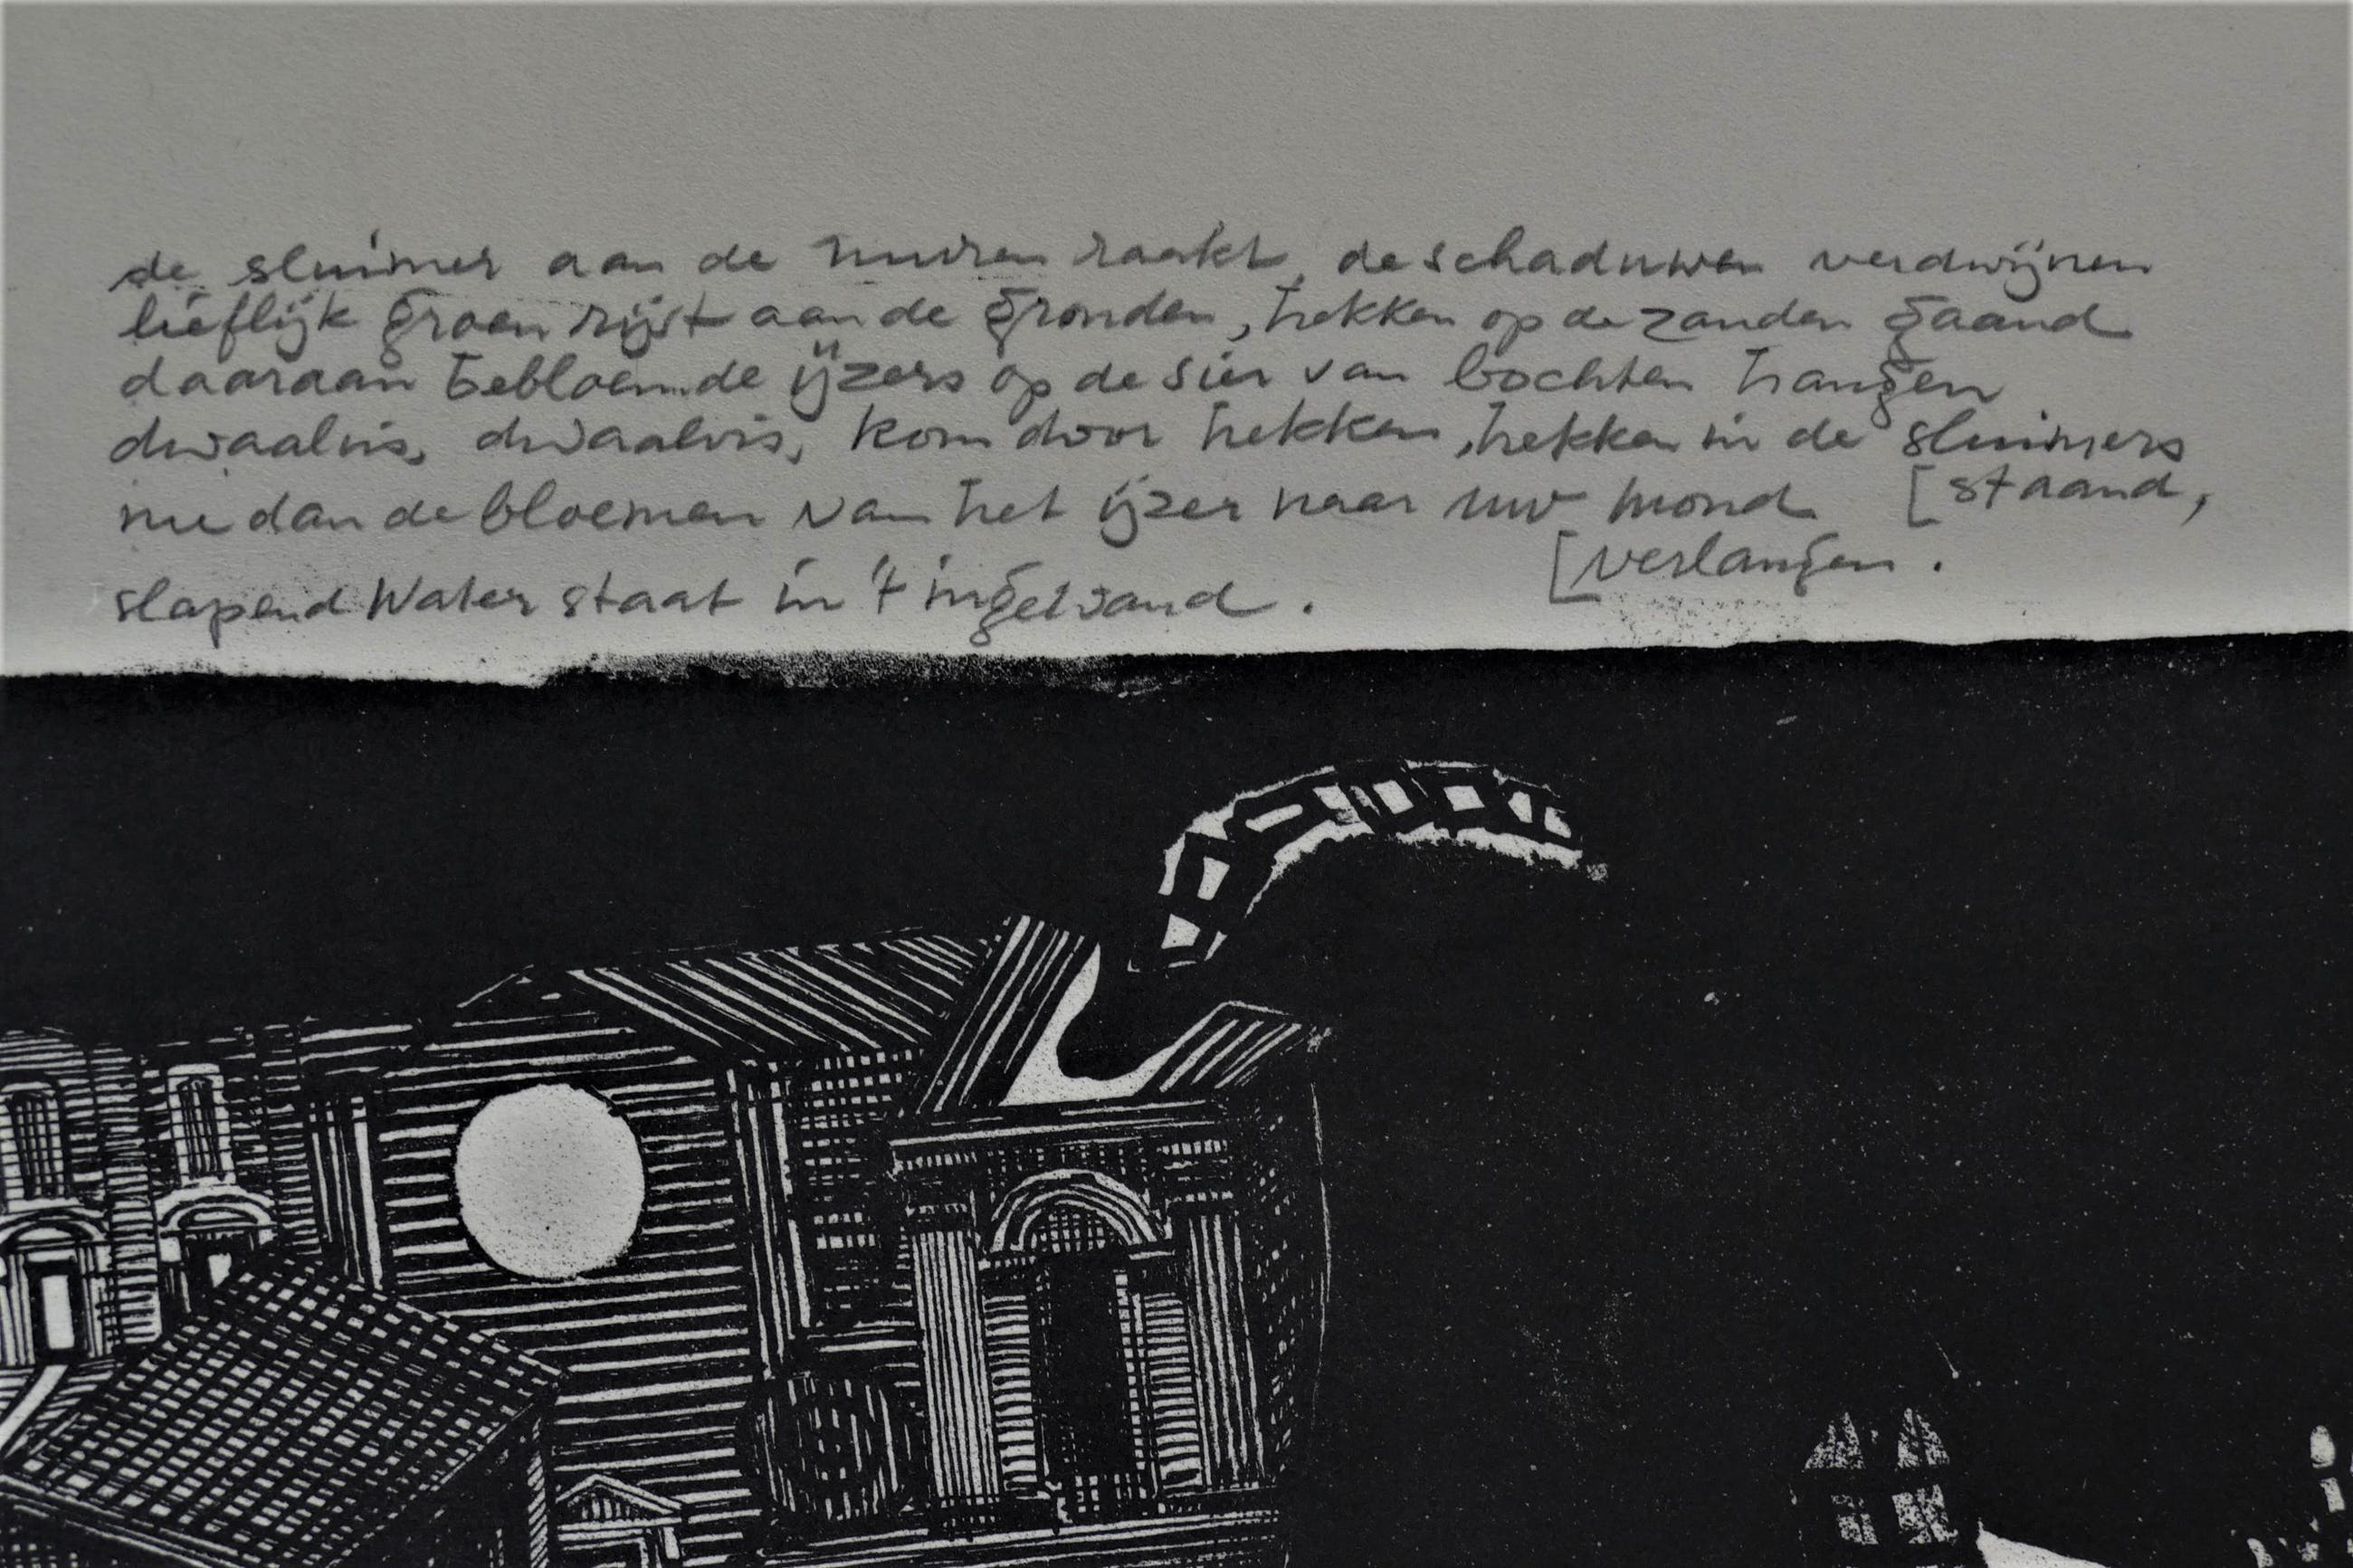 de sluimer aan de muren raakt, de schaduwen verdwijnen
lieflijk groen rijst aan de gronden, hekken op de zanden gaand
daaraan gebloemde ijzers op de sier van bochten hangen
dwaalvis, dwaalvis, kom door hekken, hekken in de sluimers
[staand,
nu dan de bloemen van het ijzer naar uw mond
[verlangen.
slapend Water staat in 't ingewand.